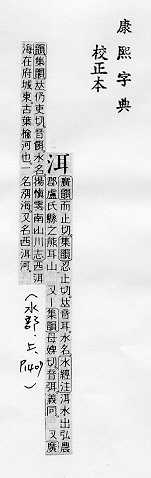 康熙字典
校正本
洱
廣韻而止切集韻忍止切𠀤音耳水名水經注洱水出弘農
郡盧氏縣之熊耳山 又集韻母婢切音弭義同 又廣
韻集韻𠀤仍吏切音餌水名楊愼雲南山川志西洱
海在府城東古葉榆河也一名洱海又名西洱河
(水部.上.P1409)